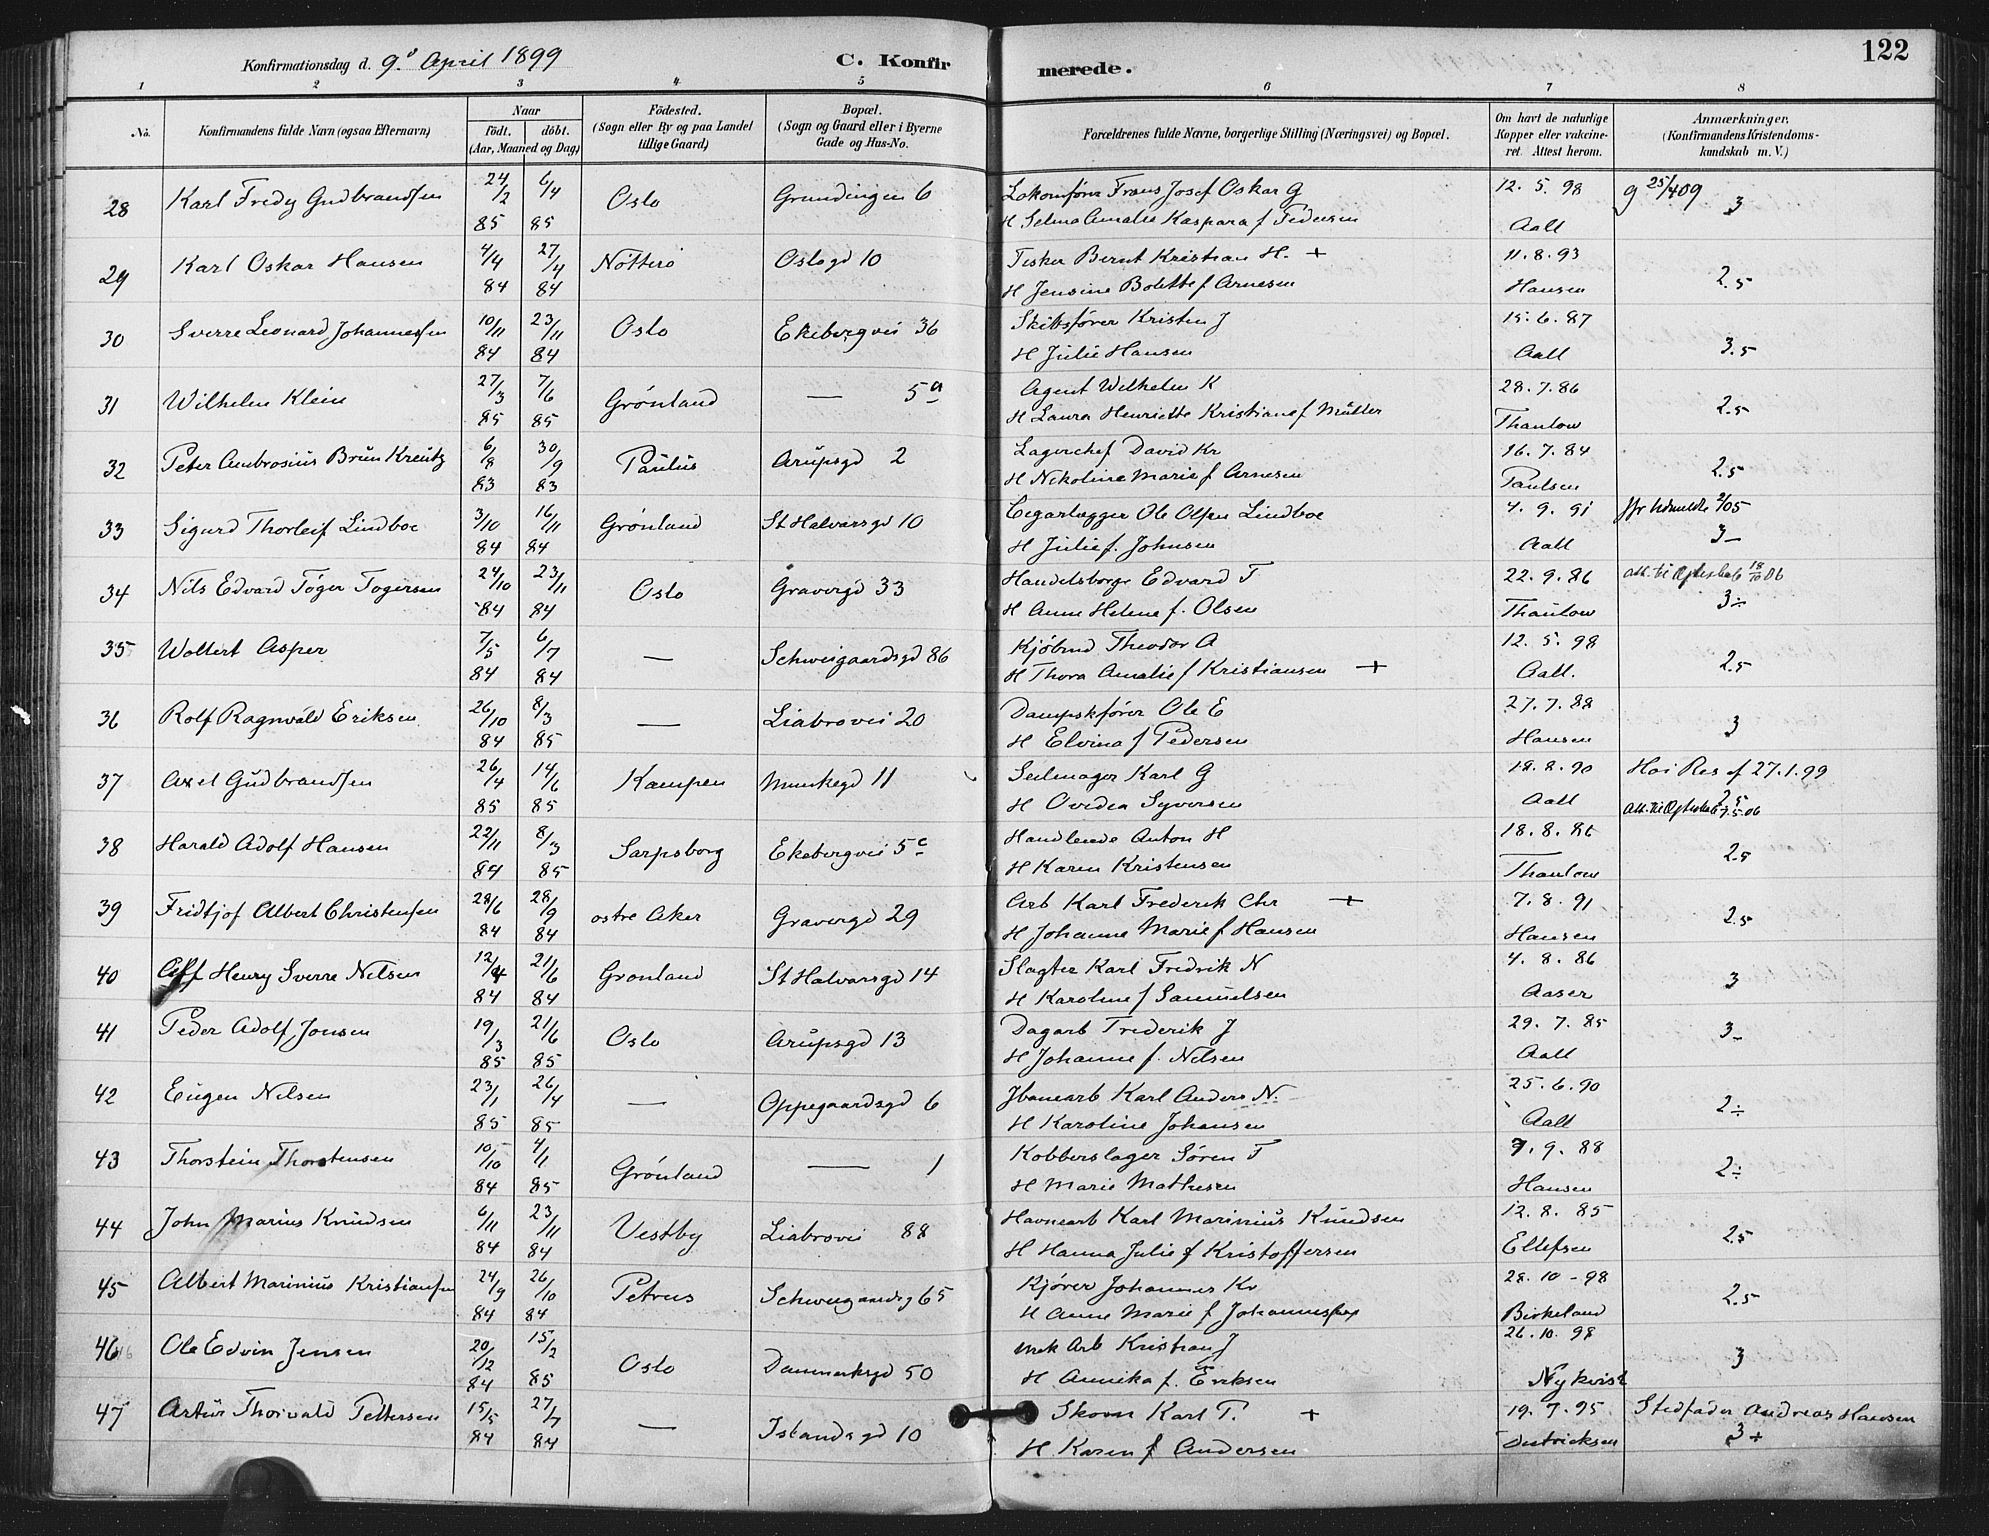 Konfirmationsdag d. 9' April 1899
C. Konfirmerede.
122
1 2 3 4 5 6 7 8
No. Konfirmandens fulde Navn (ogsaa Efternavn) Naar födt. döbt. (Aar, Maaned og Dag) Födested. (Sogn eller By og paa Landet tillige Gaard) Bopæl. (Sogn og Gaard eller i Byerne Gade og Hus-No. Forældrenes fulde Navne, borgerlige Stilling (Næringsvei) og Bopæl. Om havt de naturlige Kopper eller vakcineret. Attest herom. Anmærkninger. (Konfirmandens Kristendomskundskab m.V.)
28 Karl Fredy Gudbrandsen 24/2 85 6/4 85 Oslo Grundingen 6 Lokomfører Frans Josef Oskar G 12.5.98 g 25/409
H Selma Amalie Kaspara f Pedersen Aall 3
29 Karl Oskar Hansen 4/4 84 27/4 84 Nötterö Oslogd 10 Fisker Bernt Kristian H. + 11.8.93
H Jensine Bolette f Arnesen Hansen 2.5
30 Sverre Leonard Johannessen 10/11 84 23/11 84 Oslo Ekebergvei 36 Skibsfører Kristen J 15.6.87
H Julie Hansen Aall 3.5
31 Wilhelm Klein 27/3 85 7/6 85 Grønland — 5a Agent Wilhelm K 28.7.86
H Laura Henriette Kristiane f Müller Thaulow 2.5
32 Peter Ambrosius Brun Kreutz 6/8 83 30/9 83 Paulus Arupsgd 2 Lagerchef David Kr 16.7.84
H Nikoline Marie f Arnesen Paulsen 2.5
33 Sigurd Thorleif Lindboe 3/10 84 16/11 84 Grønland St Halvarsgd 10 Cigarlægger Ole Olsen Lindboe 4.9.91
H Julie f. Johnsen Aall 3-
34 Nils Edvard Töger Togersen 24/10 84 23/11 84 Oslo Gravergd 33 Handelsborge Edvard T 22.9.86
H Anne Helene f. Olsen Thaulow 3÷
35 Woltert Asper 7/5 84 6/7 84 — Schweigaardsgd 86 Kjöbmd Theodor A 12.5.98
H Thora Amalie f Kristiansen + Aall. 2.5
36 Rolf Ragnvald Eriksen 26/10 84 8/3 85 — Liabrovei 20 Dampskfører Ole E 27.7.88
H Elvina f Pedersen Hansen 3
37 Axel Gudbrandsen 26/4 85 14/6 85 Kampen Munkegd 11 Seilmager Karl G 18.8.90 Hoi Res af 27.1.99
H Ovedia Syversen Aall
38 Harald Adolf Hansen 22/11 84 8/3 85 Sarpsborg Ekebergvei 5c Handlende Anton H 18.8.86
H Karen Kristensen Thaulow 2.5
39 Fridtjof Albert Christensen 28/6 84 28/9 84 ostre Aker Gravergd 29 Arb Karl Frederik Chr + 7.8.91
H Johanne Marie f Hansen Hansen 2.5
40 Henry Sverre Nilsen 12/4 84 21/6 84 Gronland St Halvarsgd 14 Slagter Karl Fredrik N 4.8.86
H Karoline f Samuelsen Aaser 3
41 Peder Adolf Jonsen 19/3 85 21/6 85 Oslo Arupsgd 13 Dagarb Frederik J 29.7.85
H Johanne f. Nilsen Aall 3-
42 Eugen Nilsen 23/1 85 26/4 85 — Oppegaardsgd 6 Jbanearb Karl Anders N. 25.6.90
H Karoline Johansen Aall 2÷
43 Thorstein Thorstensen 10/10 84 4/1 85 Grönland — 1 Kobberslager Sören T 7.9.88
H Marie Mathisen Hansen 2÷
44 John Marius Knudsen 6/11 84 23/11 84 Vestby Liabrovei 88 Havnearb Karl Marinius Knudsen 12.8.85
H Hanna Julie f Kristoffersen Ellefsen 2.5
45 Albert Marinius Kristiansen 24/9 84 26/10 84 Petrus Schweigaardsg 65 Kjører Johannes Kr 28.10-98
H Anne Marie f Johannessen Birkeland 2.5
46 Ole Edvin Jensen 20/12 84 15/2 85 Oslo Danmarksgd 50 mek Arb Kristian J 26.10.98
H Annika f. Eriksen Nykvist 3
47 Artur Thorvald Pettersen 15/5 84 27/7 84 — Islandsgd 10 Skom Karl P. + 19.7.95 Stedfader Andreas Hansen
H. Karen f Andersen 3+